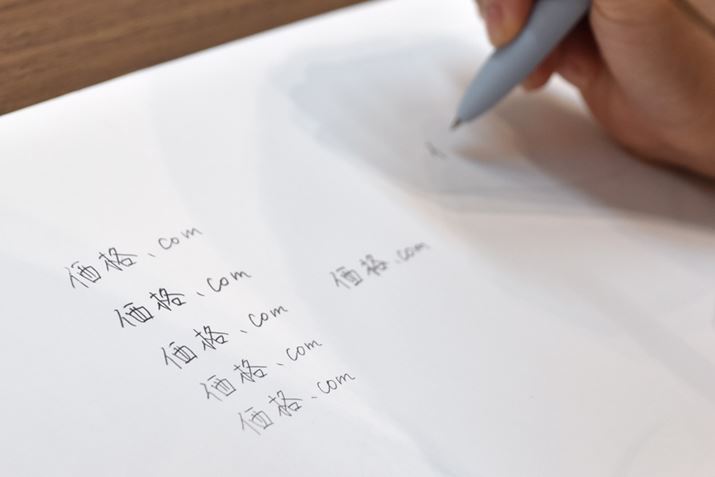 価格.com
価格.com
価格.com
価格.com
価格.com
価格.com